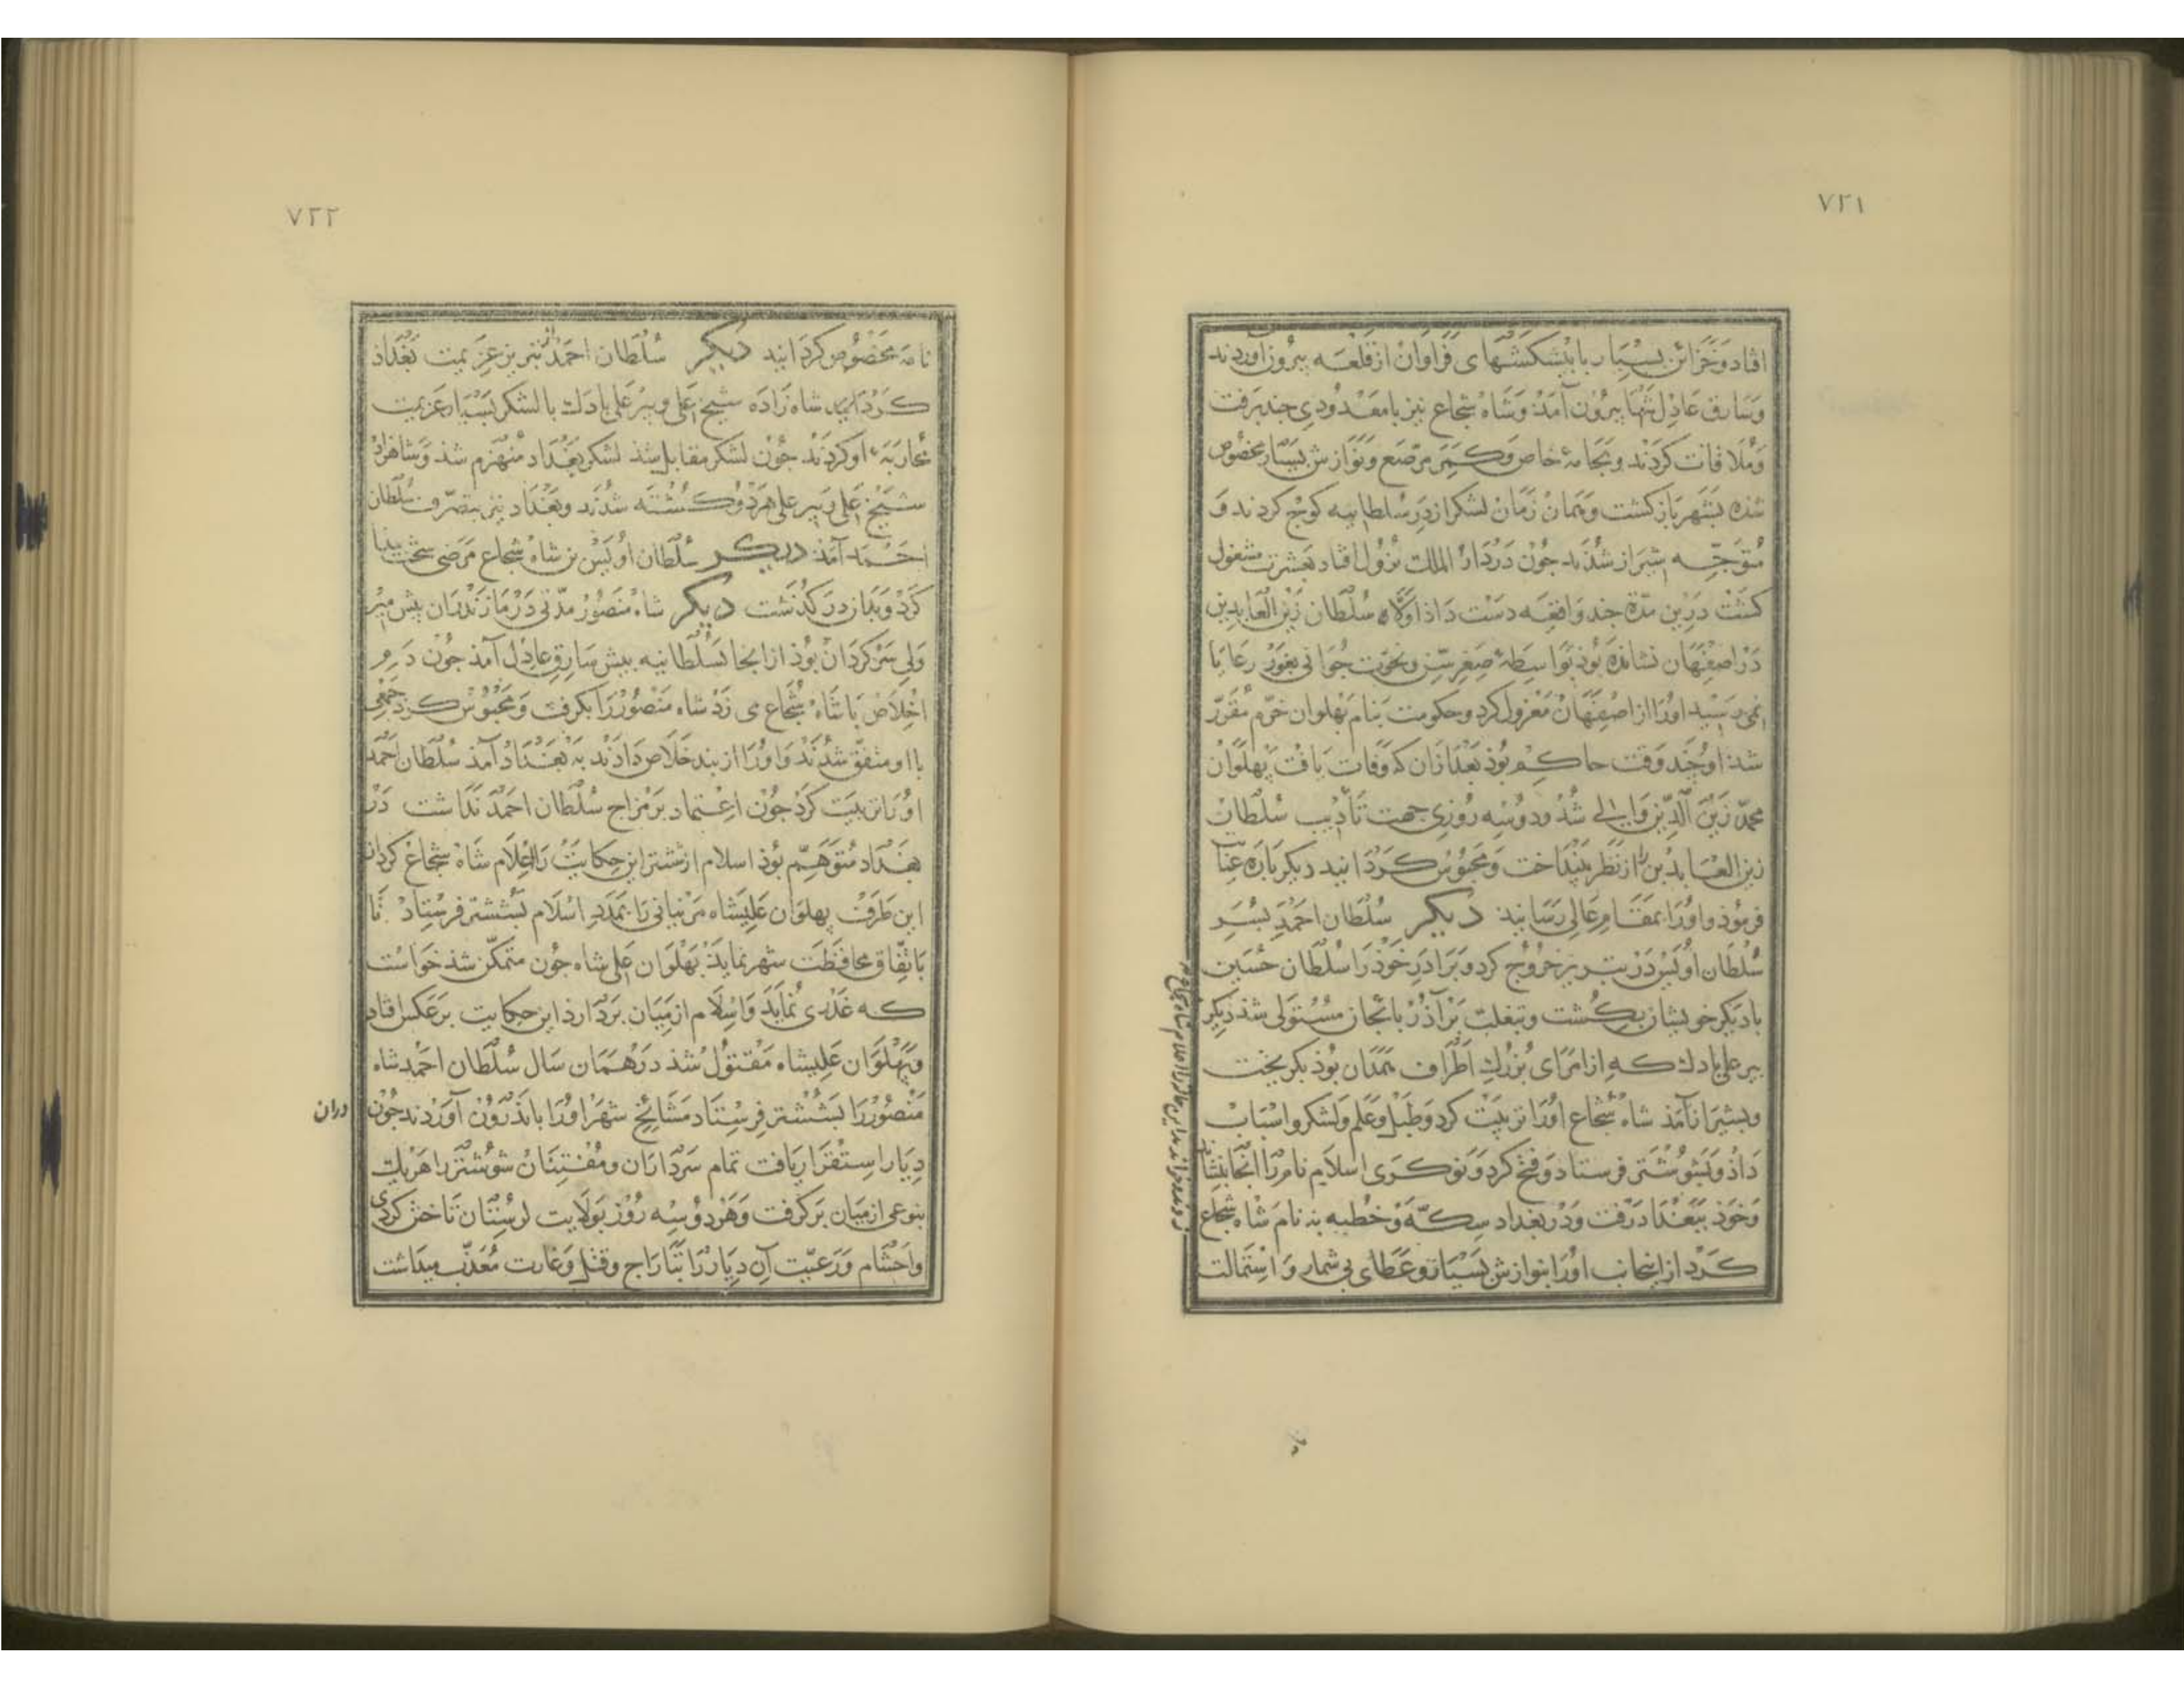 ٧٢١
افتاد و خزائن بسیار با پیشکشهای فراوان از قلعه بیرون آوردند
و سارق عادل تنها بیرون آمد و شاه شجاع نیز با معدودی چند برفت
و ملاقات کردند و بجامهٔ خاص و کمر مرصع و نوازش بسیار مخصوص
شده بشهر بازکشت و همان زمان لشکر از در سلطانیه کوچ کردند و
متوجه شیراز شدند چون در دار الملک نزول افتاد بعشرت مشغول
کشت درین مدة چند واقعه دست داد اولا سلطان زین العابدین
در اصفهان نشانده بود بواسطهٔ صغر سن و نخوت جوانی بغور رعایا
نمی رسید اورا از اصفهان معزول کرد و حکومت بنام پهلوان خرم مقرر
شد او چند وقت حاکم بود بعد ازان که وفات یافت پهلوان
محمد زین الدین والی شد و دو سه روزی جهت تأدیب سلطان
زین العابدین را از نظر بینداخت و محبوس کردانید دیکر باره عنا
فرمود و اورا بمقام عالی رسانید دیکر سلطان احمد پسر
سلطان اویس در تبریز خروج کرد و برادر خود را سلطان حسین
با دیکر خویشان بکشت و بتغلب بر آذربایجان مستولی شد دیکر
پیر علی بادک که از امرای بزرک اطراف همدان بود بکریخت
و بشیراز آمد شاه شجاع اورا تربیت کرد و طبل و علم و لشکر و اسباب
داد و بشوشتر فرستاد و فتح کرد و نوکری اسلام نام را آنجا بنشاند
و خود ببغداد رفت و در بغداد سکه و خطبه بنام شاه شجاع
کرد از اینجانب اورا بنوازش بسیار و عطای بی شمار و استمالت
٧٢٢
نامه مخصوص کردانید دیکر سلطان احمد از تبریز عزیمت بغداد
کرد شاه زاده شیخ علی و پیر علی بادک با لشکر بسیار عزیمت
محاربهٔ او کردند چون لشکر مقابل شد لشکر بغداد منهزم شد و شاهزاد
شیخ علی و پیر علی هر دو کشته شدند و بغداد نیز بتصرف سلطان
احمد آمد دیکر سلطان اویس بن شاه شجاع مرضی سخت پیدا
کرد و بدان درکذشت دیکر شاه منصور مدتی در مازندران پیش میر
ولی سرکردان بود از آنجا بسلطانیه پیش سارق عادل آمد چون دم
اخلاص با شاه شجاع می زد شاه منصور را بکرفت و محبوس کرد جمعی
با او متفق شدند و اورا از بند خلاص دادند به بغداد آمد سلطان احمد
اورا تربیت کرد چون اعتماد بر مزاج سلطان احمد نداشت در
بغداد متوهم بود اسلام از ششتر این حکایت را اعلام شاه شجاع کردان
این طرف پهلوان علیشاه مزینانی را بمدد اسلام بششتر فرستاد تا
باتفاق محافظت شهر نماید پهلوان علی شاه چون متمکن شد خواست
که غدری نماید و اسلام از میان بردارد این حکایت بر عکس افتاد
و پهلوان علیشاه مقتول شد در همان سال سلطان احمد شاه
منصور را بششتر فرستاد مشایخ شهر اورا باندرون آوردند چون
دران
دیار استقرار یافت تمام سرداران و مفتنان شوشتر را هر یک
بنوعی از میان برکرفت و هر دو سه روز بولایت لرستان تاختن کردی
و احشام و رعیت آن دیار را بتاراج و قتل و غارت معذب میداشت